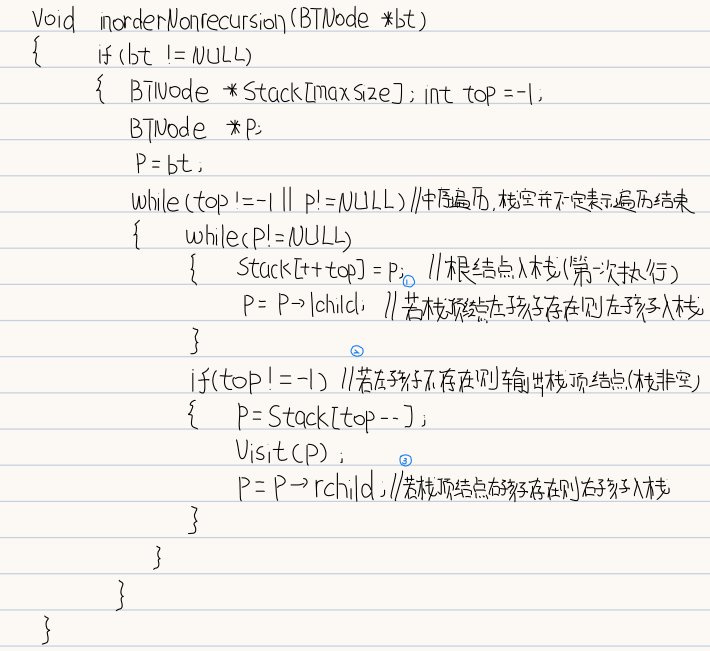 Void inorderNonrecursion(BTNode *bt)
{ if(bt != NULL)
{ BTNode *Stack[maxsize]; int top = -1;
BTNode *P;
P = bt;
while(top != -1 || p != NULL) //中序遍历,栈空并不定表示遍历结束
{ while(p != NULL)
{ Stack[++top] = p; //根结点入栈(第一次执行)
①
P = P→lchild; //若栈顶结点左孩子存在则左孩子入栈
}
②
if(top != -1) //若左孩子不存在则输出栈顶结点(栈非空)
{ P = Stack[top--];
Visit(P);
③
P = P→rchild; //若栈顶结点右孩子存在则右孩子入栈
}
}
}
}